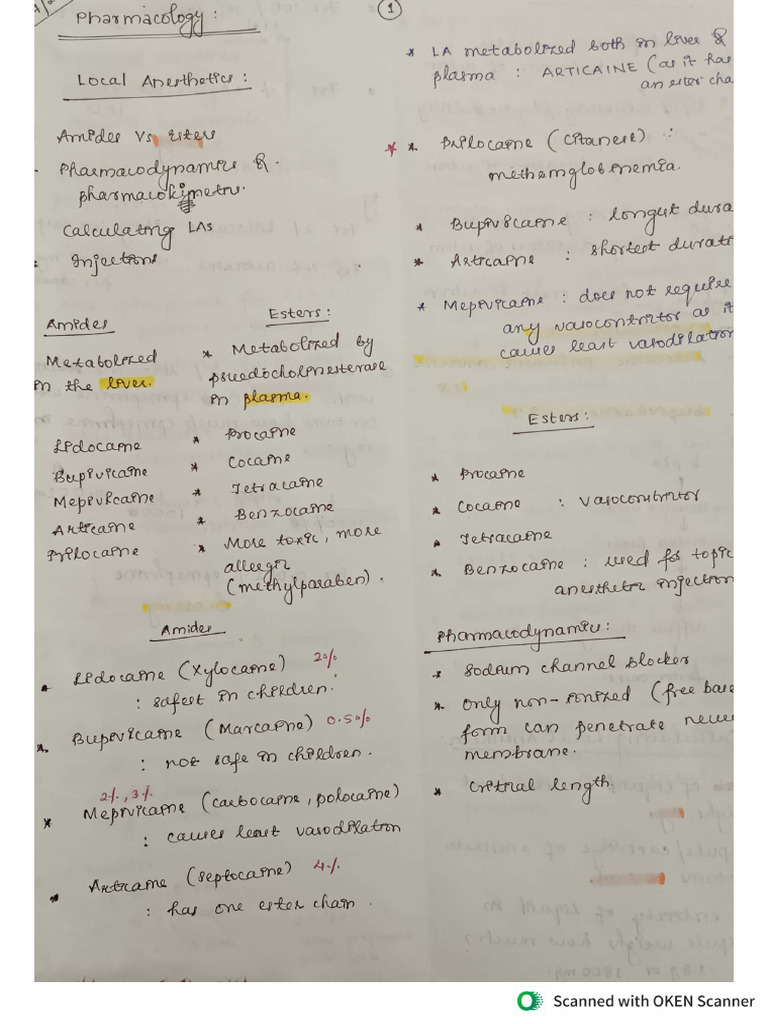 Pharmacology:
Local Anesthetics:
Amides Vs Esters
Pharmacodynamics &
pharmacokinetics.
Calculating LAs
Injections
Amides
Metabolized
in the liver.
Lidocaine
Bupivicaine
Mepivicaine
Articaine
Prilocaine
Esters:
* Metabolized by
pseudocholinesterase
in plasma.
* Procaine
* Cocaine
* Tetracaine
* Benzocaine
* More toxic, more
allergic
(methylparaben).
Amides
* Lidocaine (Xylocaine) 2%
: safest in children.
* Bupivicaine (Marcaine) 0.5%
: not safe in children.
2%, 3%
* Mepivicaine (carbocaine, polocaine)
: causes least vasodilation
* Articaine (septocaine) 4%
: has one ester chain.
1
* LA metabolized both in liver &
plasma : ARTICAINE (as it has
an ester cha
* *. Prilocaine (Citanest) :
methemglobinemia.
* Bupivicaine : longest dura
* Articaine : shortest durati
* Mepivicaine : does not require
any vasoconstrictor as it
causes least vasodilation
Esters:
* Procaine
* Cocaine : vasoconstrictor
* Tetracaine
*. Benzocaine : used for topic
anesthetic injection
Pharmacodynamics:
* Sodium channel blocker
*. Only non-ionized (free base
form can penetrate nerve
membrane.
* Critical length.
Scanned with OKEN Scanner